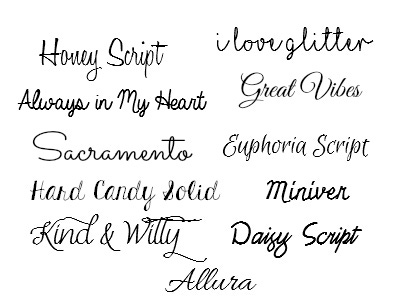 Honey Script
i love glitter
Always in My Heart
Great Vibes
Sacramento
Euphoria Script
Hard Candy Solid
Miniver
Kind & Witty
Daisy Script
Allura